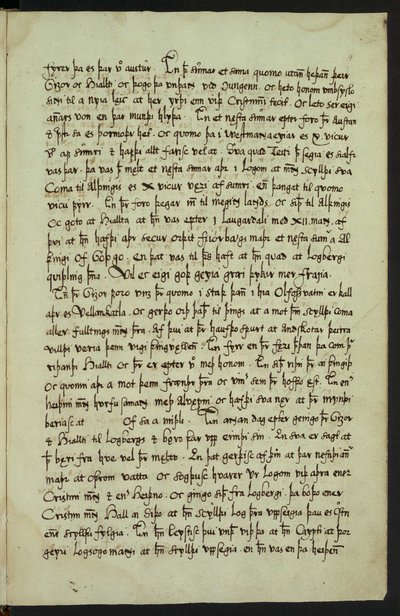 fyrer þa es þar vͦ austur. En þͭ sumar et sama quomo uttan heþan þeir
Gizor oc Hialti oc þogo þa unþann við kungenn. oc heto honom umbsyslo
sini til a nyia leic at her yrþi enn viþ Cristninni tekit. Oc leto ser eigi
anars von en þar munþi hlyþa. En et nesta sumar epter foro þr̄ austan
& p̄str sa es þormoþr het. Oc quomo þa i Westmanaeyiar es X. vicur
vͦ af sumri & hafþi allt farisc vel at. Sva quaþ Teitr þn̄ segia es sialfr
vas þar. þa vas þͭ melt et nesta sumar aþr i logom at mn̄ scyllþi sva
Coma til Alþingis es X vicur veri af sumri. en þangat til quomo
vicu fyrr. En þr̄ foro þegar in̄ til megin lanþs oc siþ̄ til Alþingis
Oc goto at Hiallta at hn̄ vas epter i Laugardali með XII. man̄. af
þvi at hn̄ hafþi aþr secur orþit fiorbaugs maþr et nesta sum̄ a Al
þingi Of Goþgo. En þat vas til þess haft at hn̄ quað at Logbergi
quiþling þena. Vil ec eigi goþ geyia grai þykir mer fraiia.
En þr̄ Gizor foro unz þr̄ quomo i staþ þan̄ i hia Olfossvatni er kall
aþr es Vellankatla. Oc gerþo orþ þaþ̄ til þings at a mot þm̄ scyllþi Coma
aller fulltings mn̄ þra. Af þui at þr̄ haufþo spurt at andskotar þeirra
villþi veria þem vigi þingvollen̄. En fyrr en þr̄ feri þaþan þa com þr̄
riþanþi Hiallti Oc þr̄ er epter vͦ með honom. En siþ̄ riþu þr̄ a þingit
Oc quomu aþr a mot þem frænþr þra oc vin̄ sem þr̄ hofþo est. En en̄
heiþnu mn̄ hurfu saman með Alvepni oc hafþi sva nær at þr̄ mynþi
beriasc at Of sa a miþli. En annan dag epter gengo þr̄ Gizor
& Hialti til Logbergs & boro þar upp erinþi sin. En sva er sagt at
þͭ beri fra hve vel þr̄ melto. En þat gerþisc af þui at þar nefndi an̄
maþr at oþrom vatta. Oc sogþusc hvarer yr Logom viþ aþra ener
Cristnu mn̄ & en̄ heiþno. Oc gingo siþ̄ fra Logbergi. þa boþo ener
Cristnu mn̄ Hall a Siþo at hn̄ scyllþi Log þra uppsegia þau es Cristn
enē scyllþi fylgia. En hn̄ leystisc þui unþ̄ viþ þa at hn̄ Caypti at þor
geyri Logsogo manni at hn̄ scyllþi uppsegia. en hn̄ vas en þa heiþen̄